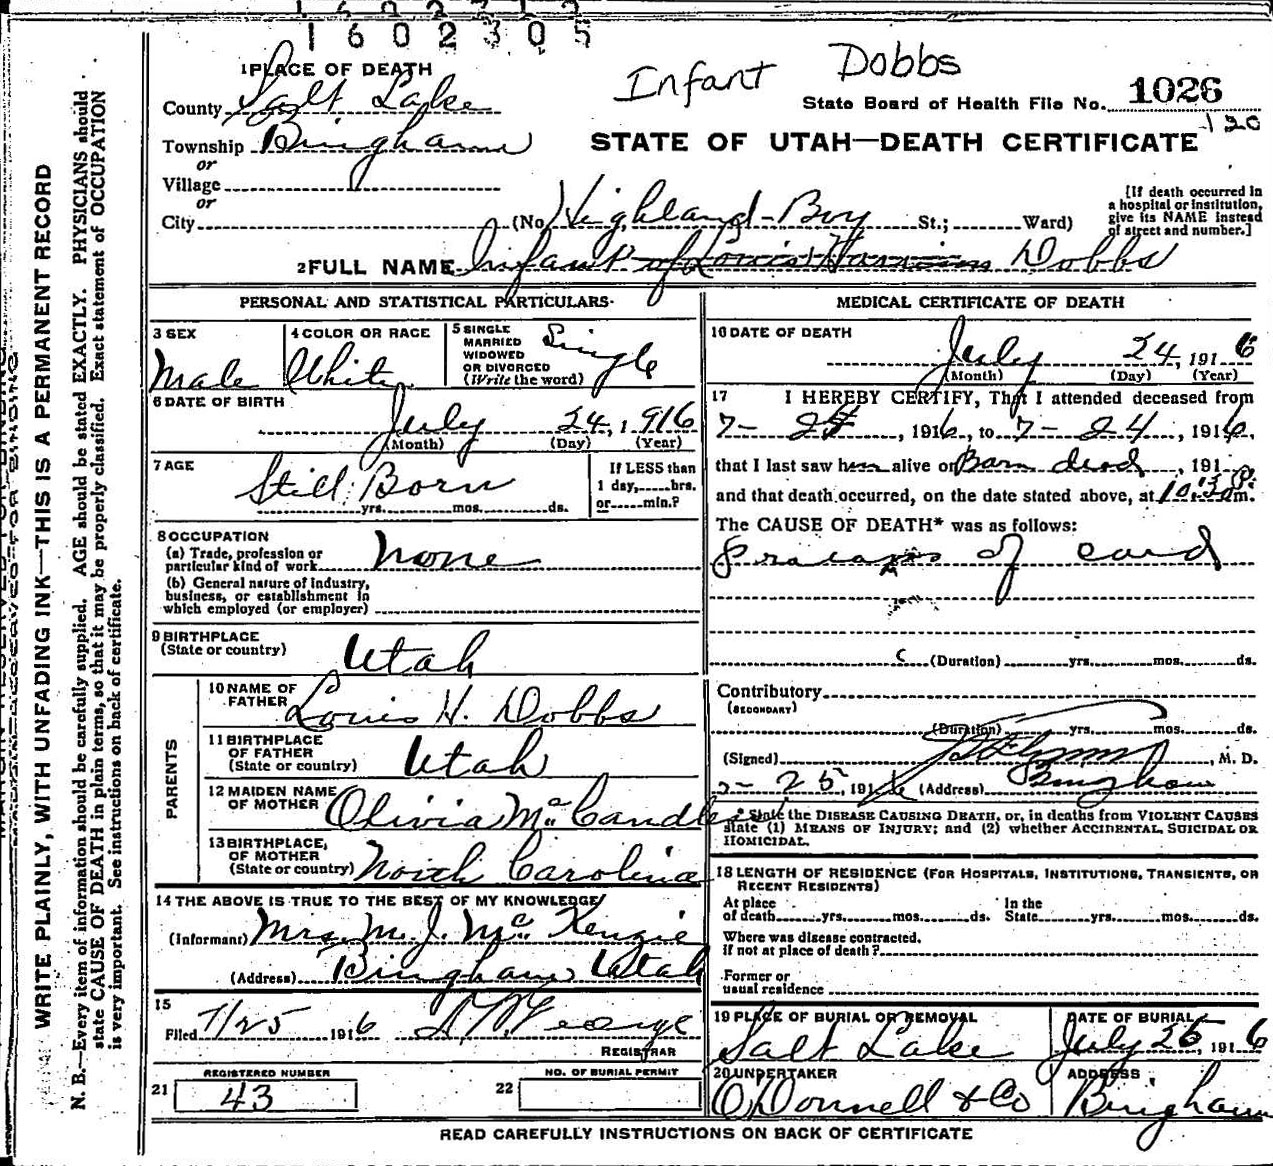 1602305
Infant Dobbs
1 PLACE OF DEATH
County Salt Lake
State Board of Health File No. 1026
120
Township Bingham
STATE OF UTAH—DEATH CERTIFICATE
or
Village
or
City (No. Highland-Boy St.; Ward)
[If death occurred in
a hospital or institution,
give its NAME instead
of street and number.]
2 FULL NAME Infant of Louis Harrison Dobbs
PERSONAL AND STATISTICAL PARTICULARS
3 SEX
Male
4 COLOR OR RACE
White
5 SINGLE
MARRIED
WIDOWED
OR DIVORCED
(Write the word)
Single
6 DATE OF BIRTH
July 24, 1916
(Month) (Day) (Year)
7 AGE
Still Born
yrs. mos. ds.
If LESS than
1 day, hrs.
or min.?
8 OCCUPATION
(a) Trade, profession or
particular kind of work none
(b) General nature of industry,
business, or establishment in
which employed (or employer)
9 BIRTHPLACE
(State or country) Utah
PARENTS
10 NAME OF
FATHER Louis H. Dobbs
11 BIRTHPLACE
OF FATHER
(State or country) Utah
12 MAIDEN NAME
OF MOTHER Olivia McCandless
13 BIRTHPLACE,
OF MOTHER
(State or country) North Carolina
14 THE ABOVE IS TRUE TO THE BEST OF MY KNOWLEDGE
(Informant) Mrs. M. J. McKenzie
(Address) Bingham Utah
15
Filed 7/25 1916
REGISTRAR
21 REGISTERED NUMBER
43
22 NO. OF BURIAL PERMIT
MEDICAL CERTIFICATE OF DEATH
16 DATE OF DEATH
July 24, 1916
(Month) (Day) (Year)
17 I HEREBY CERTIFY, That I attended deceased from
7- 24, 1916, to 7- 24, 1916,
that I last saw him alive on Born dead, 191
and that death occurred, on the date stated above, at 10:30 P.m.
The CAUSE OF DEATH* was as follows:
of cord
(Duration) yrs. mos. ds.
Contributory
(SECONDARY)
(Duration) yrs. mos. ds.
(Signed) , M. D.
7-25, 1916 (Address) Bingham
* State the DISEASE CAUSING DEATH, or, in deaths from VIOLENT CAUSES
state (1) MEANS OF INJURY; and (2) whether ACCIDENTAL, SUICIDAL OR
HOMICIDAL.
18 LENGTH OF RESIDENCE (FOR HOSPITALS, INSTITUTIONS, TRANSIENTS, OR
RECENT RESIDENTS)
At place
of death yrs. mos. ds.
In the
State yrs. mos. ds.
Where was disease contracted,
if not at place of death?
Former or
usual residence
19 PLACE OF BURIAL OR REMOVAL
Salt Lake
DATE OF BURIAL
July 25, 1916
20 UNDERTAKER
O'Donnell & Co
ADDRESS
Bingham
READ CAREFULLY INSTRUCTIONS ON BACK OF CERTIFICATE
WRITE PLAINLY, WITH UNFADING INK—THIS IS A PERMANENT RECORD
N. B.—Every item of information should be carefully supplied. AGE should be stated EXACTLY. PHYSICIANS should
state CAUSE OF DEATH in plain terms, so that it may be properly classified. Exact statement of OCCUPATION
is very important. See instructions on back of certificate.